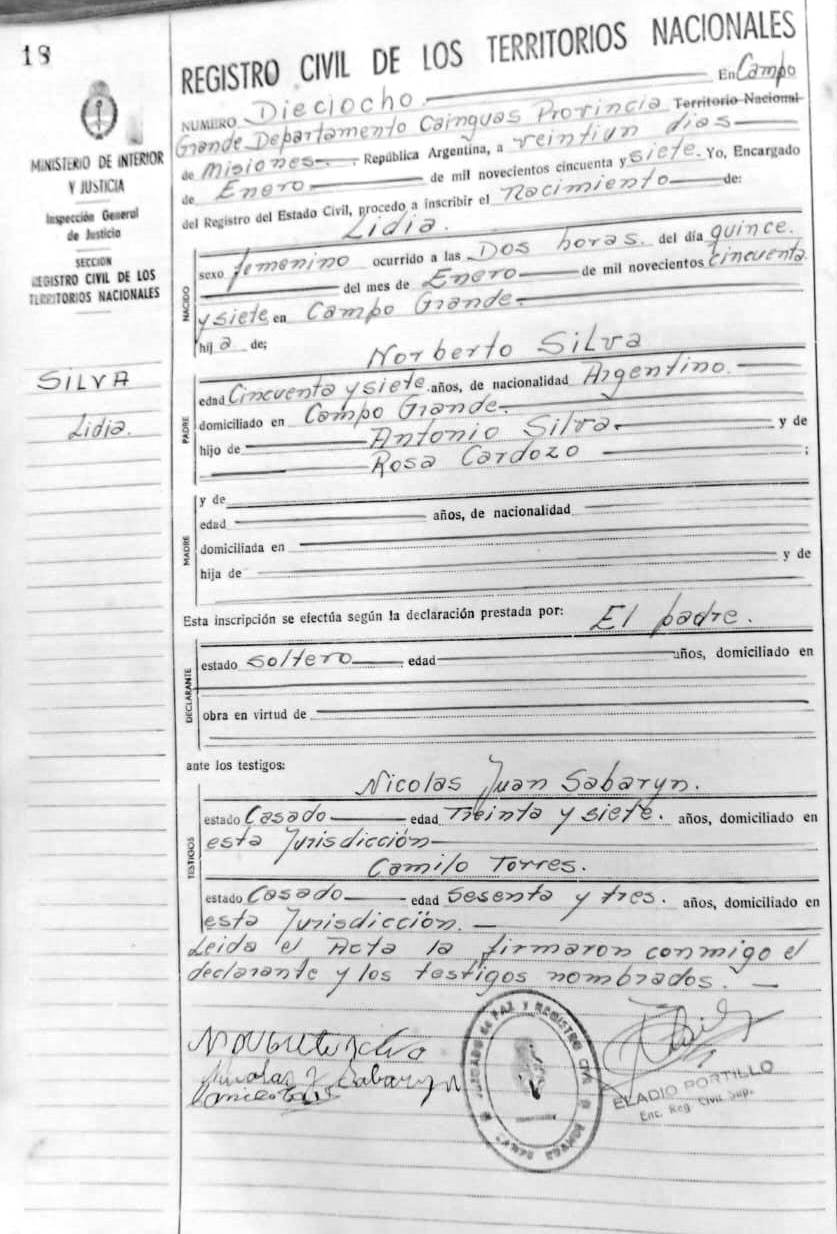 18
MINISTERIO DE INTERIOR
Y JUSTICIA
Inspección General
de Justicia
SECCION
REGISTRO CIVIL DE LOS
TERRITORIOS NACIONALES
SILVA
Lidia.
REGISTRO CIVIL DE LOS TERRITORIOS NACIONALES
NUMERO Dieciocho En Campo
Grande Departamento Cainguas Provincia Territorio Nacional
de Misiones. República Argentina, a veintiun dias
de Enero de mil novecientos cincuenta y siete. Yo, Encargado
del Registro del Estado Civil, procedo a inscribir el Nacimiento de:
Lidia.
NACIDO
sexo femenino ocurrido a las Dos horas. del día quince.
del mes de Enero de mil novecientos cincuenta
y siete en Campo Grande.
hij a de;
Norberto Silva
PADRE
edad Cincuenta y siete años, de nacionalidad Argentino.
domiciliado en Campo Grande.
hijo de Antonio Silva. y de
Rosa Cardozo ;
MADRE
y de
edad años, de nacionalidad
domiciliada en
hija de y de
Esta inscripción se efectúa según la declaración prestada por: El padre.
DECLARANTE
estado Soltero edad años, domiciliado en
obra en virtud de
ante los testigos:
Nicolas Juan Sabaryn.
TESTIGOS
estado Casado edad Treinta y siete. años, domiciliado en
esta Jurisdicción
Camilo Torres.
estado Casado edad Sesenta y tres. años, domiciliado en
esta Jurisdicción.
Leida el Acta la firmaron conmigo el
declarante y los testigos nombrados.
Nicolas J Sabaryn
JUZGADO de PAZ Y REGISTRO CIVIL
CAMPO GRANDE
ELADIO PORTILLO
Enc. Reg. Civil Sup.